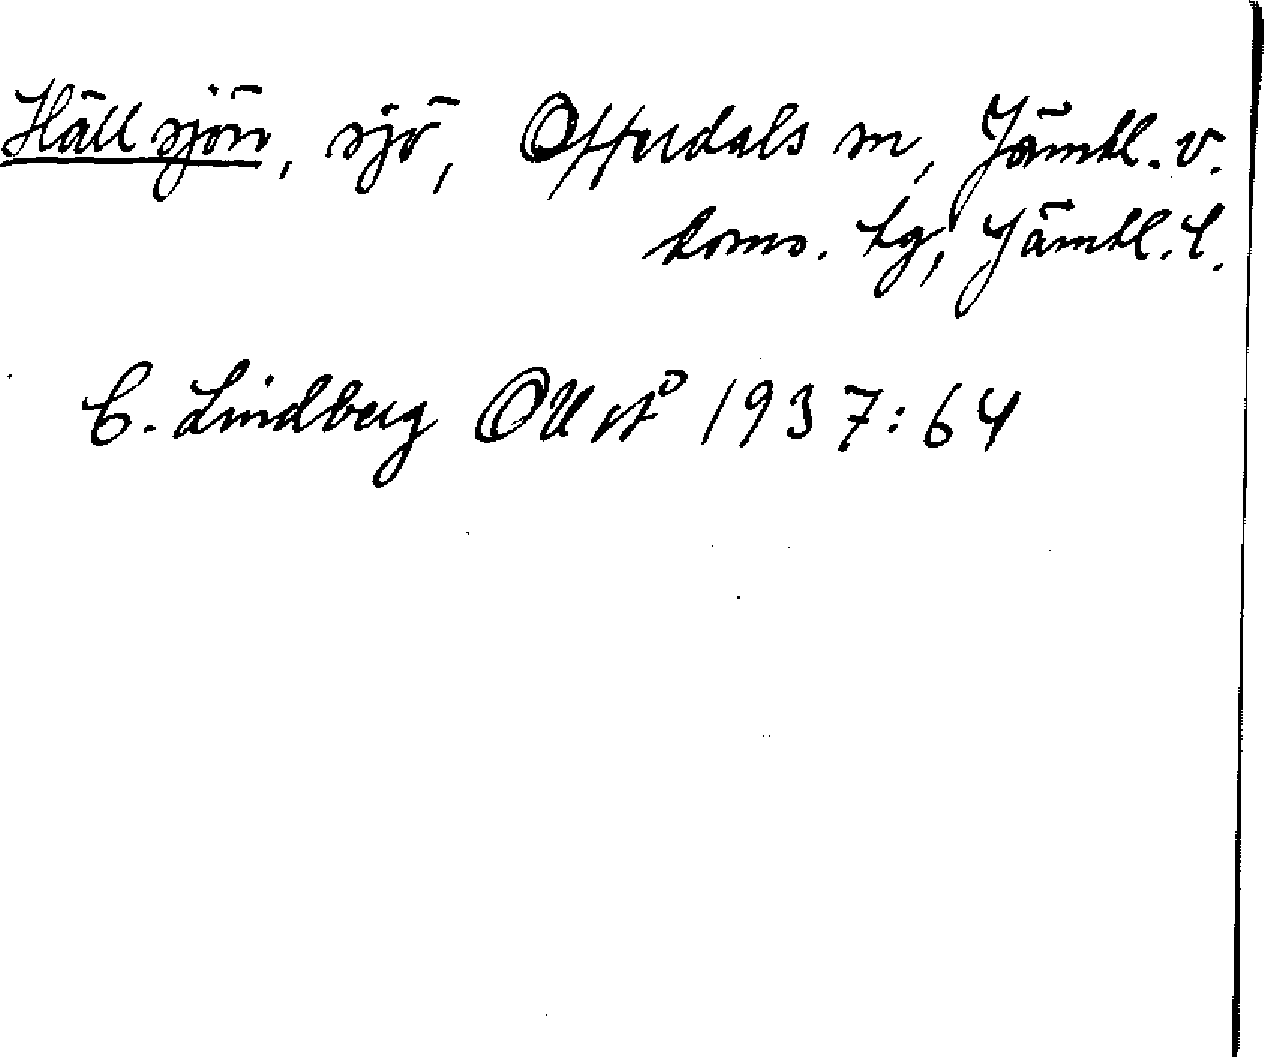 Hällsjön, sjö, Offerdals sn, Jämtl. v.
doms. tg, Jämtl. l.
C. Lindberg OUÅ 1937:64